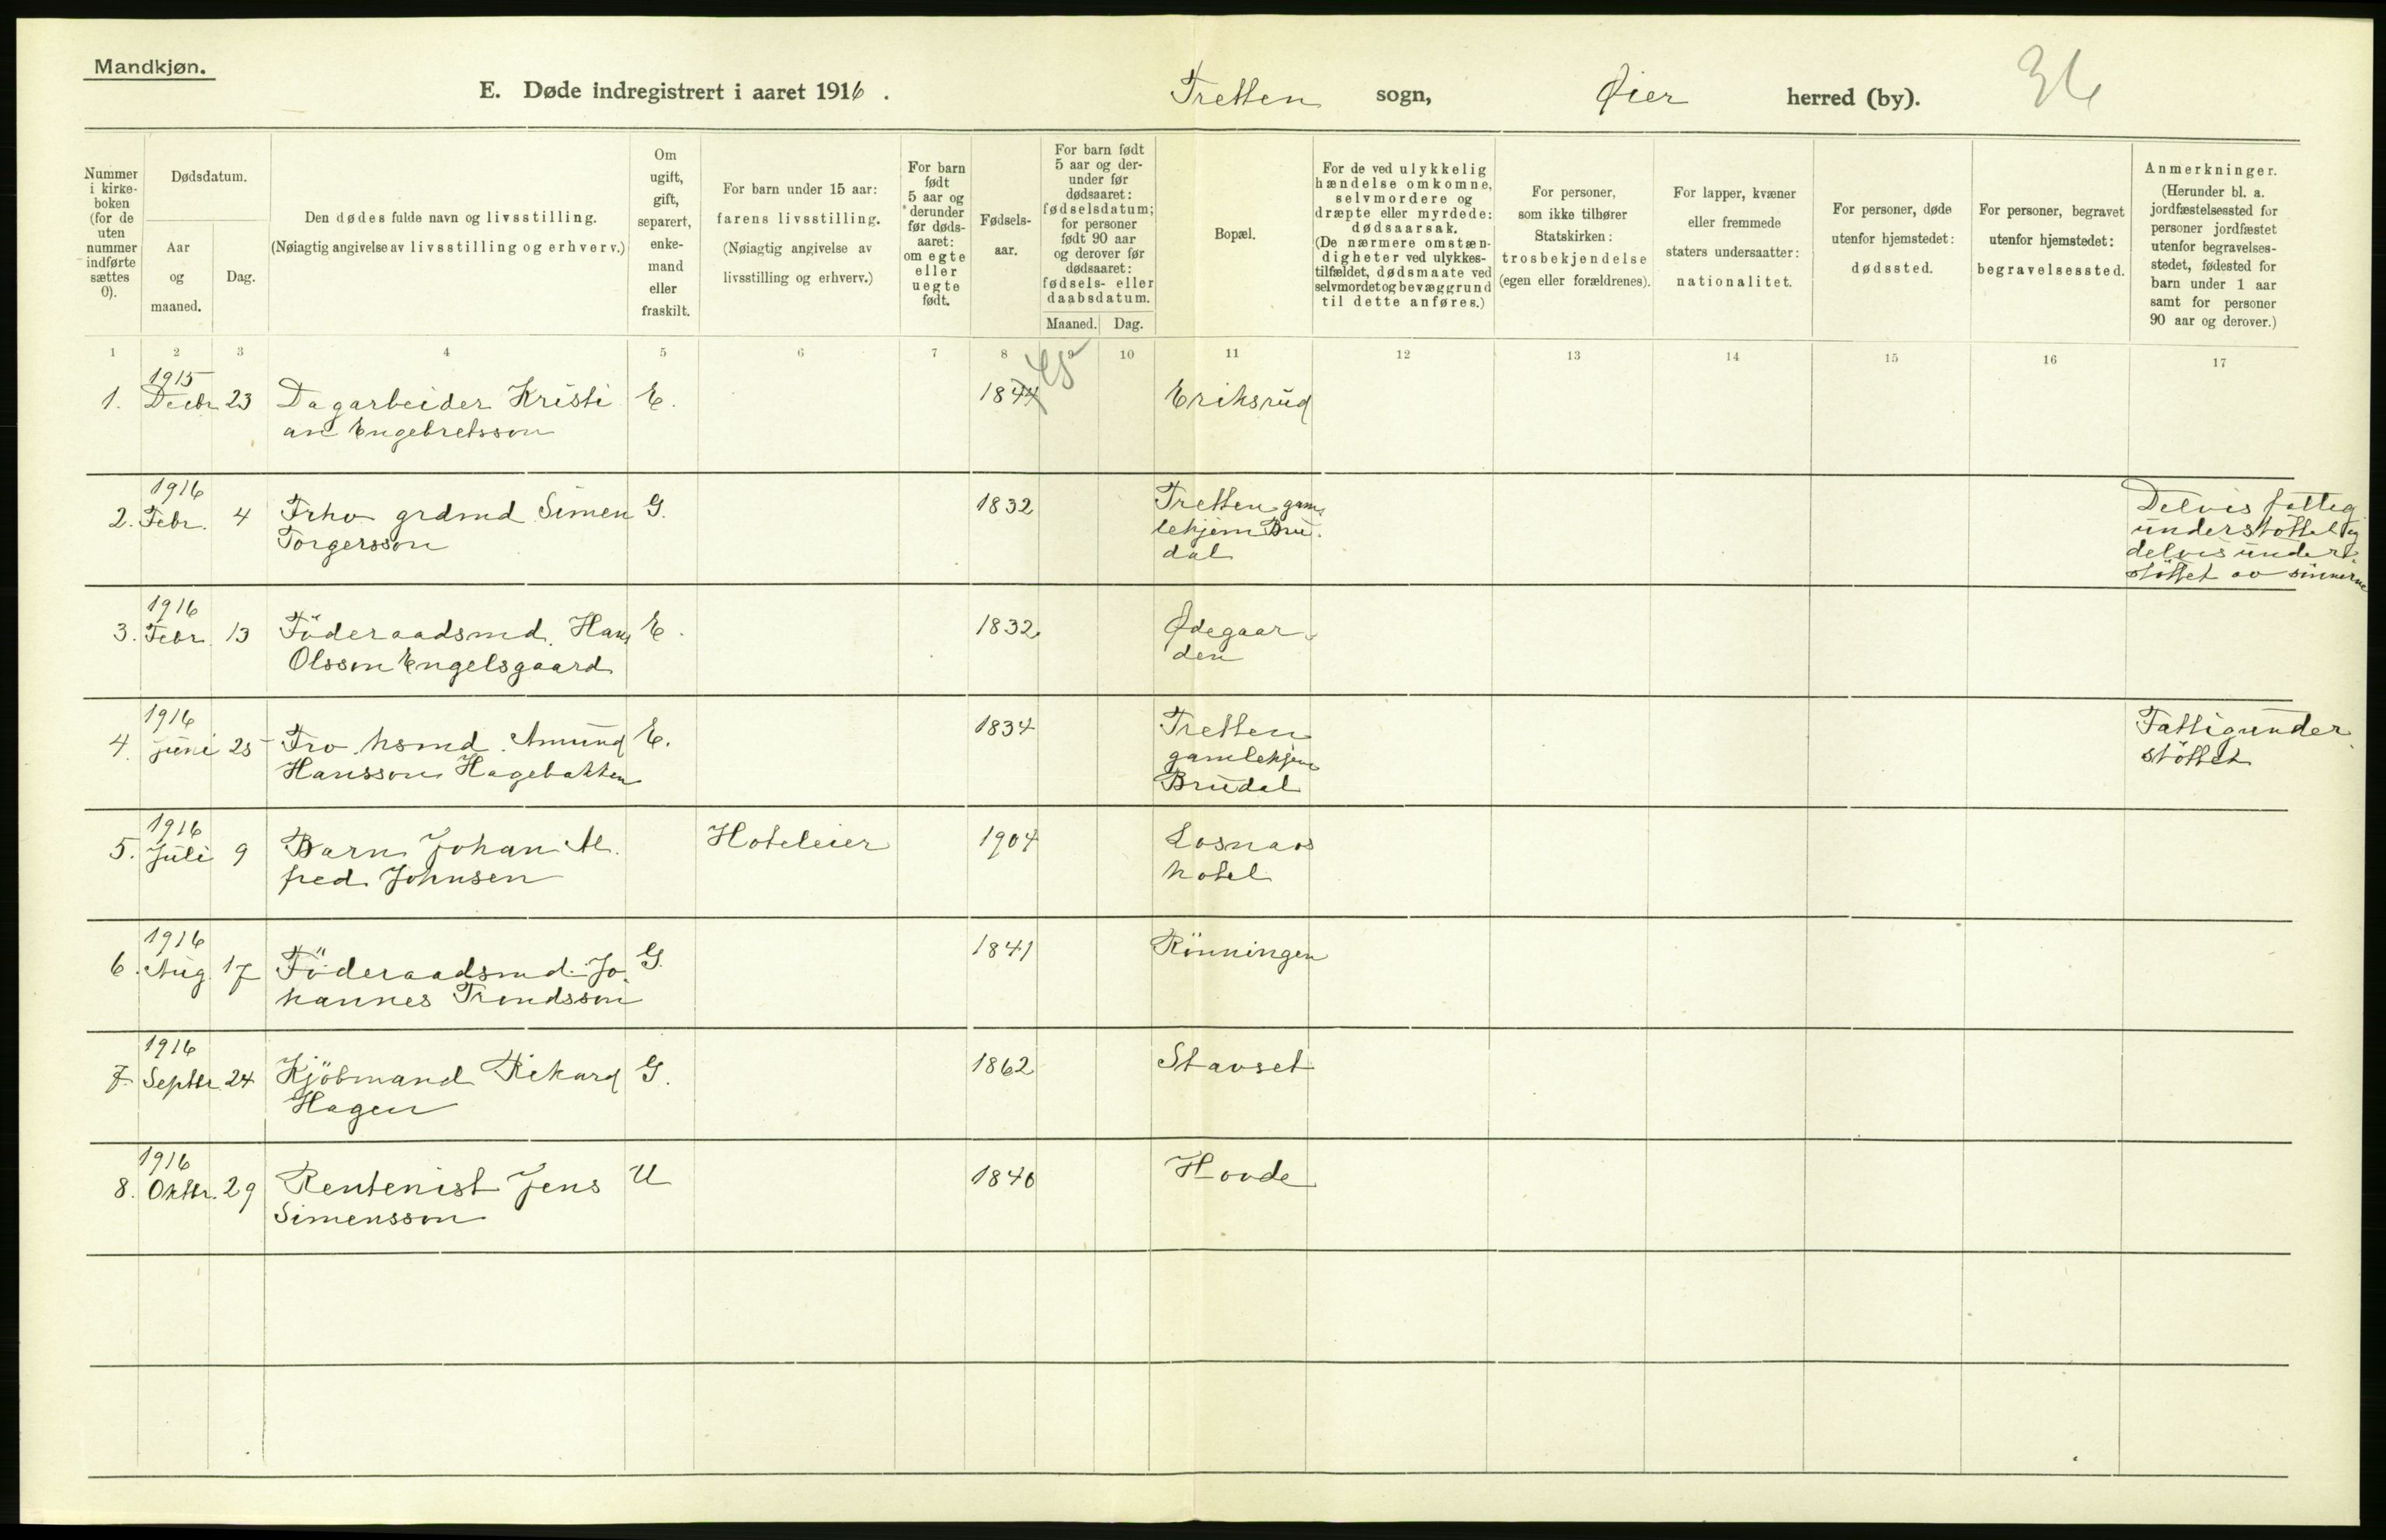 Mandkjøn.
E. Døde indregistrert i aaret 1916.
Tretten sogn, Øier herred (by).
36
Nummer i kirke-boken (for de uten nummer indførte sættes 0).
Dødsdatum.
Aar og maaned.
Dag.
Den dødes fulde navn og livsstilling.
(Nøiagtig angivelse av livsstilling og erhverv.)
Om ugift, gift, separert, enke-mand eller fraskilt.
For barn under 15 aar: farens livsstilling.
(Nøiagtig angivelse av livsstilling og erhverv.)
For barn født 5 aar og derunder før døds-aaret: om egte eller uegte født.
Fødsels-aar.
For barn født 5 aar og der-under før dødsaaret: fødselsdatum; for personer født 90 aar og derover før dødsaaret: fødsels- eller daabsdatum.
Maaned. Dag.
Bopæl.
For de ved ulykkelig hændelse omkomne, selvmordere og dræpte eller myrdede: dødsaarsak.
(De nærmere omstæn-digheter ved ulykkes-tilfældet, dødsmaate ved selvmordet og bevæggrund til dette anføres.)
For personer, som ikke tilhører Statskirken: trosbekjendelse (egen eller forældrenes).
For lapper, kvæner eller fremmede staters undersaatter: nationalitet.
For personer, døde utenfor hjemstedet: dødssted.
For personer, begravet utenfor hjemstedet: begravelsessted.
Anmerkninger.
(Herunder bl. a. jordfæstelsessted for personer jordfæstet utenfor begravelses-stedet, fødested for barn under 1 aar samt for personer 90 aar og derover.)
1 2 3 4 5 6 7 8 9 10 11 12 13 14 15 16 17
1915
45
1. Decbr 23 Dagarbeider Kristi E. 1844 Eriksrud
an Engebretsson
1916
2. Febr. 4 Frhv grdmd Simen G. 1832 Tretten gam Delvis fattig
Torgersson lehjem Bru understöttet og
dal delvis under
støttet av sönnerne
1916
3. Febr 13 Föderaadsmd. Hans E. 1832 Ødegaar
Olsson Engelsgaard den
1916
4. juni 25 Frv hsmd. Amund E. 1834 Tretten Fattigunder
Hansson Hagebakken gamlehjem støttet
Brudal
1916
5. Juli 9 Barn Johan Al Hoteleier 1904 Losnaos
fred Johnsen hotel
1916
6. Aug. 17 Föderaadsmd. Jo G. 1841 Rönningen
hannes Trondsson
1916
7 Septbr. 24 Kjöbmand Rikard G. 1862 Stavset
Hagen
1916
8. Oktbr. 29 Rentenist Jens U 1846 Hovde
Simensson